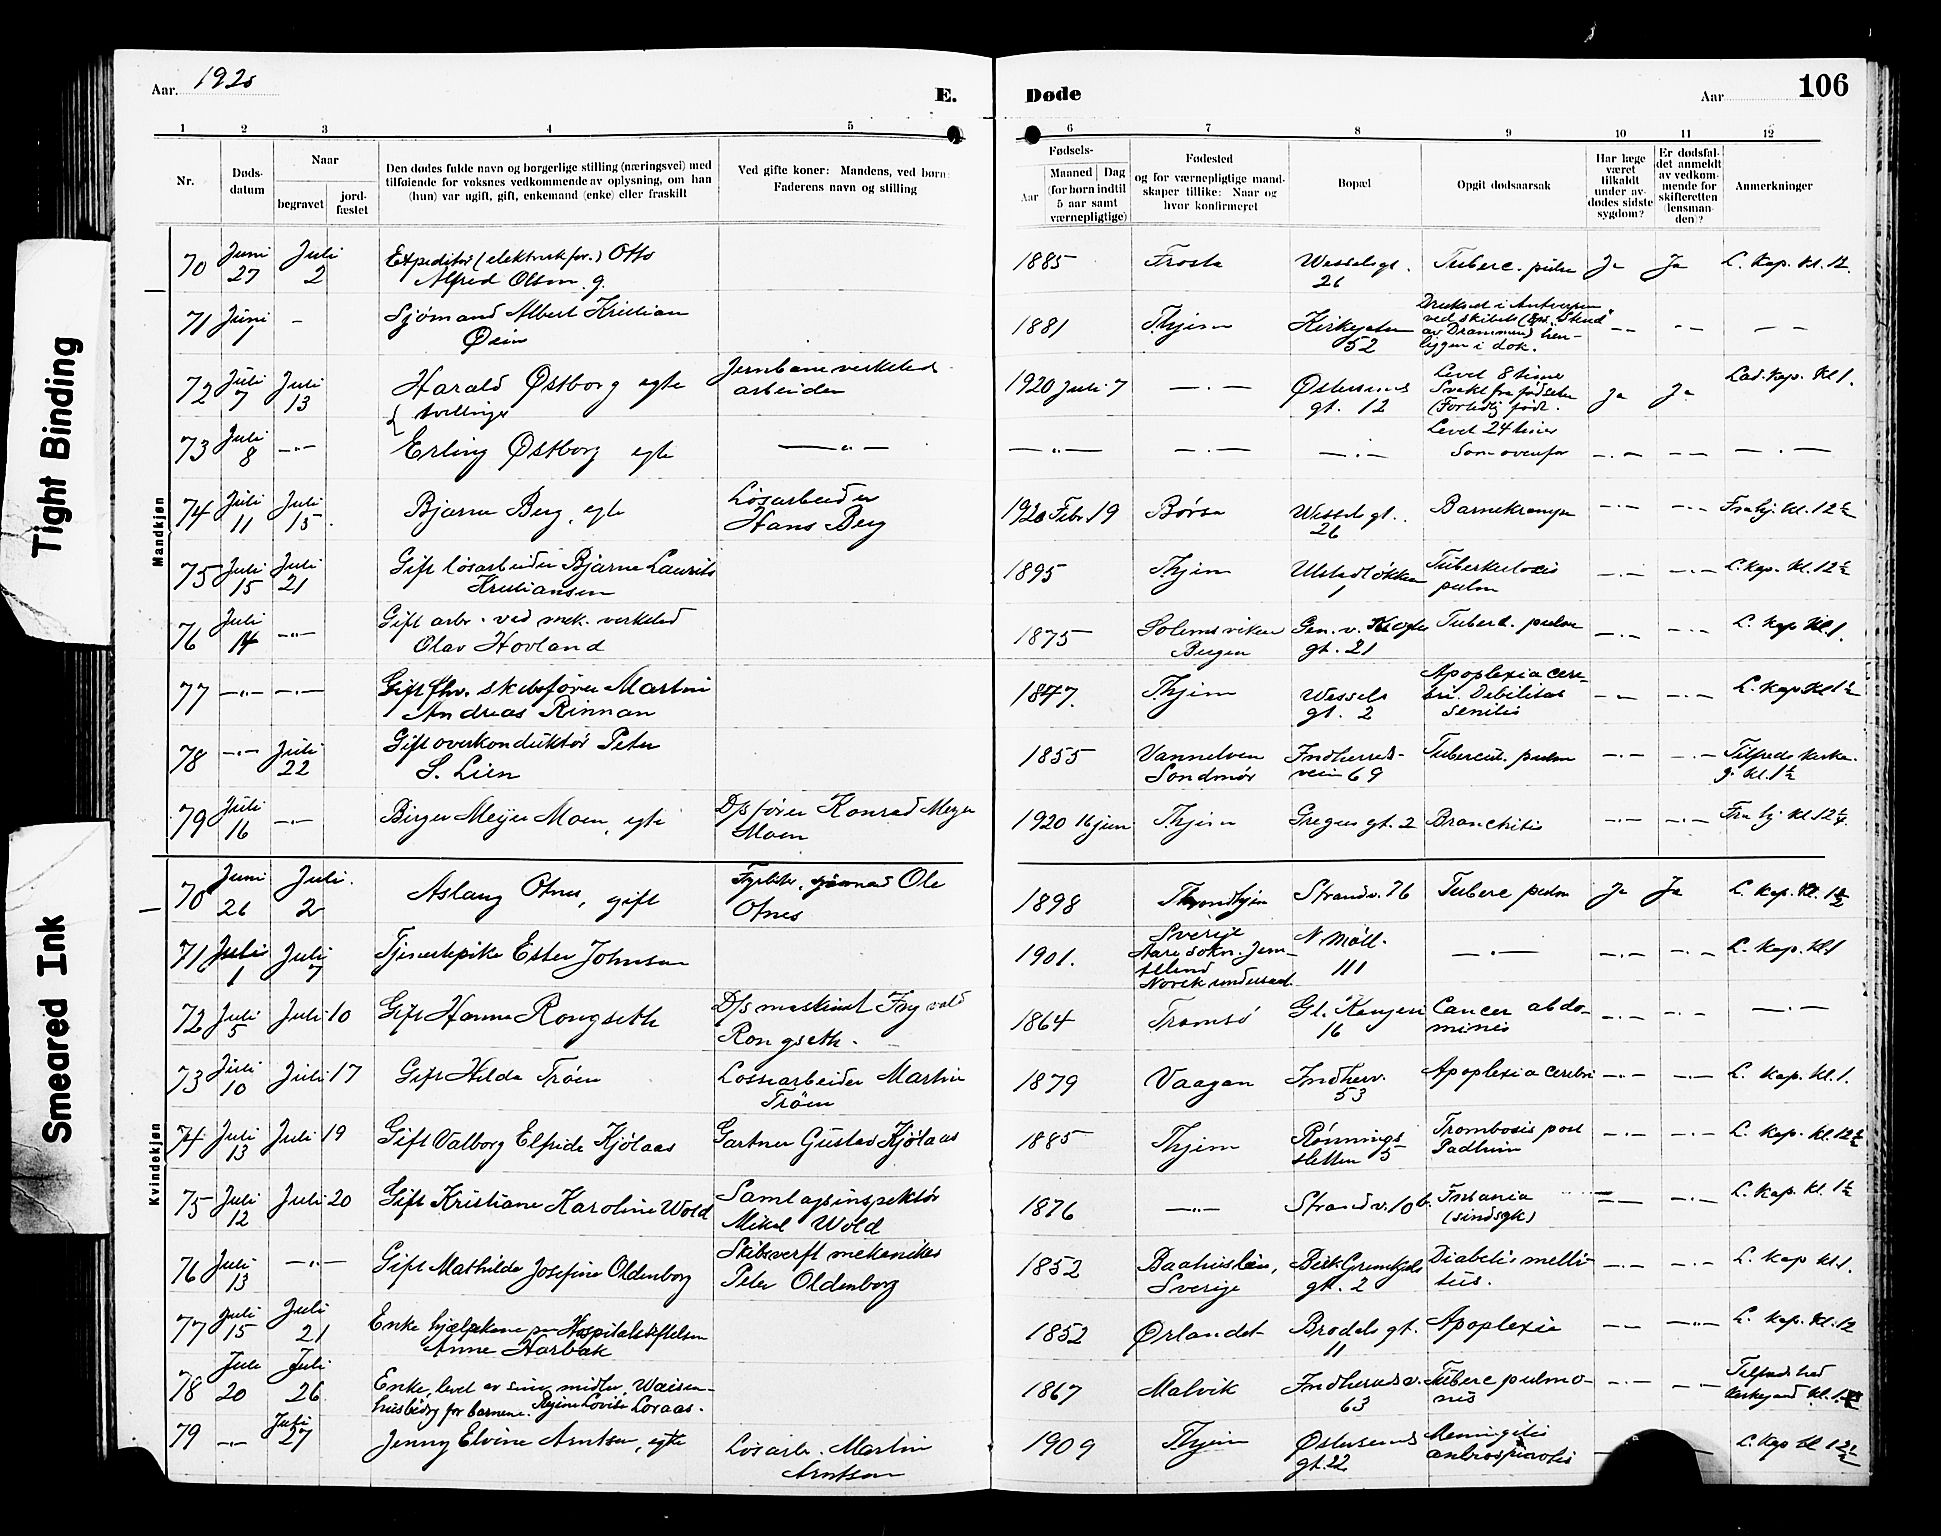 Aar. 1920
E. Døde
Aar 106
Tight Binding
Smeared Ink
1 2 3 4 5 6 7 8 9 10 11 12
Nr.
Døds-
datum
Naar
begravet
jord-
fæstet
Den dødes fulde navn og borgerlige stilling (næringsvei) med
tilføiende for voksnes vedkommende av oplysning, om han
(hun) var ugift, gift, enkemand (enke) eller fraskilt
Ved gifte koner: Mandens, ved børn:
Faderens navn og stilling
Fødsels-
Aar
Maaned Dag
(for børn indtil
5 aar samt
værnepligtige)
Fødested
og for værnepligtige mand-
skaper tillike: Naar og
hvor konfirmeret
Bopæl
Opgit dødsaarsak
Har læge
været
tilkaldt
under av-
dødes sidste
sygdom?
Er dødsfal-
det anmeldt
av vedkom-
mende for
skifteretten
(lensman-
den)?
Anmerkninger
Mandkjøn
70 Juni 27 Juli 2 Expeditør (elektrisk for.) Otto
Alfred Olsen. g. 1885 Frosta Wesselsgt. 26 Tuberc. pulm Ja Ja L. Kap. Kl. 12.
71 Juni - Sjømand Albert Kristian
Øein 1881 Thjem Kirkegaten 52 Druknet i Antverpen
ved skibets
av Drammen
liggen i dok. - - - - - -
72 Juli 7 Juli 13 Harald Østborg egte Jernbaneverksteds
arbeider 1920 Juli 7 — . — Østersunds
gt. 12 Levet 8 timer
Svakt fra fødselen
(Fortidlig født. Ja Ja Lad. Kap. Kl 1.
{ tvillinger
73 Juli 8 —"— Erling Østborg egte —"— —"— — . — — . — Levet 24 timer
Som ovenfor — . — — — — . —
74 Juli 11 Juli 15 Bjarne Berg, egte Løsarbeider
Hans Berg 1920 Febr. 19 Børsa Wesselsgt.
26 Barnekrampe — . — — . — Fra hj. kl. 12½
75 Juli 15 Juli 21 Gift løsarbeider Bjarne Laurits
Kristiansen 1895 Thjem Ulstadløkken
1 Tuberkulosis
pulm — . — — . — L. Kap. Kl. 12½
76 Juli 14 —"— Gift arb. ved mek. verksted
Olav Hovland 1875 Solemsviken
Bergen Gen. v. Krogh
gt. 21 Tuberc. pulm — . — — . — L. Kap Kl 1.
77 —"— —"— Gift fhv. skibsfører Martin
Andreas Rinnan 1847. Thjem Wessels
gt. 2 Apoplexia cere-
bri. Debilitas
senilis — . — — . — L. Kap Kl 1½
78 —"— Juli 22 Gift overkonduktør Peter
S. Lien 1855 Vannelven
Søndmør Indherreds-
veien 69 Tubercul. pulm — . — — . — Tilfreds kirke-
g. kl. 1½
79 Juli 16 —"— Birger Meyer Moen, egte D/s fører Konrad Meyer
Moen 1920 16 juni Thjem Gregus gt. 2 Bronchitis — . — — . — Fra hj. Kl. 12¼.
Kvindekjøn
70 Juni 26 Juli 2 Aslaug Otnes, gift Fyrbøter, sjømand Ole
Otnes 1898 Throndhjem Strandv. 76 Tuberc pulm Ja Ja L. Kap. Kl. 1½
71 Juli 1 Juli 7 Tjenestepike Ester Johnsen 1901. Sverige
Aare sokn. Jem-
tland
Norsk undersaat. N Møll.
111 — . — — . — — . — L. Kap. Kl 1
72 Juli 5 Juli 10 Gift Hanna Rongseth D/s maskinist Ingvald
Rongseth. 1864 Tromsø Gl. Kongevei
16 Cancer abdo-
minis — . — — . — — . —
73 Juli 10 Juli 17 Gift Hilda Trøen Lossearbeider Martin
Trøen 1879 Vaagan Indherv.
53 Apoplexia cerebri — . — — . — L. Kap. Kl. 1.
74 Juli 13 Juli 19 Gift Valborg Elfrida Kjølaas Gartner Gustav Kjølaas 1885 Thjem Rønnings
sletten 5 Trombosis post — . — — . — L. Kap. Kl. 12½
75 Juli 12 Juli 20 Gift Kristiane Karoline Wold Samlagsinspektør
Mikal Wold 1876 —"— Strandv. 10 b. Insania
(sindsyk) — . — — . — L. Kap. Kl. 1½
76 Juli 13 —"— Gift Mathilde Josefine Oldenborg Skibsverft mekaniker
Peter Oldenborg 1852 Baahuslän,
Sverige Beck Gramkjels
gt. 2 Diabetis melli-
tus. — . — — . — L. Kap Kl 1.
77 Juli 15 Juli 21 Enke hjælpekone paa Hospitalsstiftelsen
Anne Harbak 1852 Ørlandet Brodals gt.
11 Apoplexia — — — . — L. Kap. Kl. 12
78 Juli 20 Juli 26 Enke, levet av sine midler, Waisen-
husbidrag for barnene. Regine Lovise Loraas. 1867 Malvik Indherredsv.
63 Tuberc pulmo-
nis — . — — . — Tilfredshed
kirkegaard kl. 1
79 —"— Juli 27 Jenny Elvine Arntsen, egte Løsarb. Martin
Arntsen 1909 Thjem Østersunds
gt. 22 Meningitis
cerebrospinalis L. Kap kl 12½